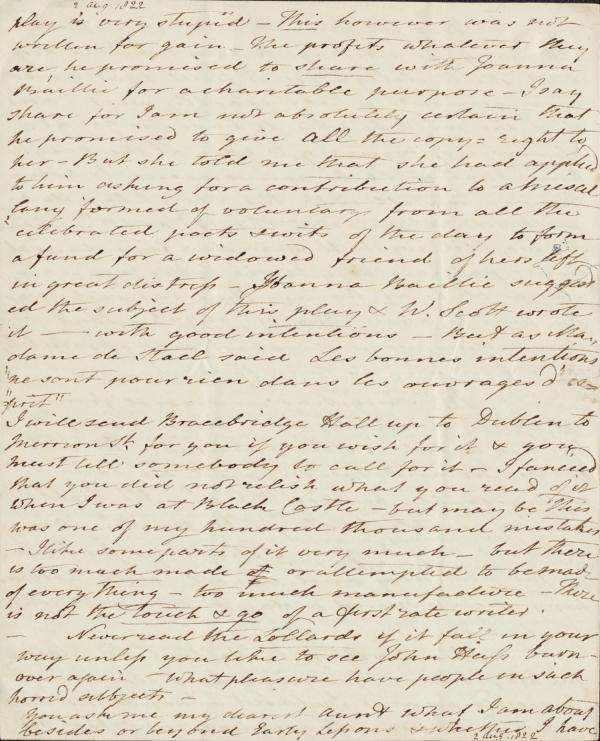 2 Aug 1822
play is very stupid - This however was not
written for gain - The profits whatever they
are he promised to share with Joanna
Baillie for a charitable purpose - I say
share for I am not absolutely certain that
he promised to give all the copy=right to
her - But she told me that she had applied
to him asking for a contribution to a miscel
lany formed of voluntary from all the
celebrated poets & wits of the day to form
a fund for a widowed friend of hers left
in great distress - Joanna Baillie suggest
ed the subject of this play & W. Scott wrote
it - with good intentions - But as Ma=
dame de Stael said Les bonnes intentions
"ne sont pour rien dans les ouvrages d'es=
"prit"
I will send Bracebridge Hall up to Dublin to
Merrion St. for you if you wish for it & you
must tell somebody to call for it - I fancied
that you did not relish what you read of it
when I was at Black Castle - but may be This
was one of my hundred thousand mistakes
- I like some parts of it very much - but there
is too much made of or attempted to be made
of every thing - too much manufacture - There
is not the touch & go of a first rate writer.
- Never read the Lollards if it fall in your
way unless you like to see John Huss burn
over again - what pleasure have people in such
horrid subjects -
You ask me my dearest aunt what I am about
besides or beyond Early Lessons & whether I have
2 Aug. 1822